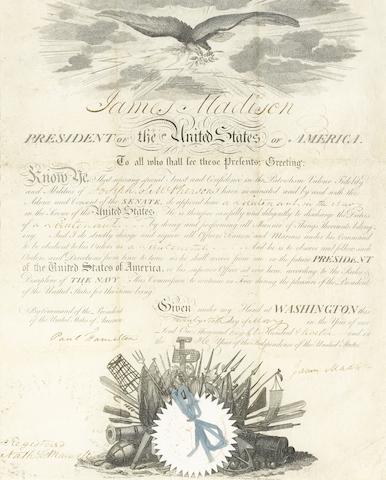 James Madison
PRESIDENT OF the United States OF AMERICA.
To all who shall see these Presents, Greeting:
Know Ye, That reposing special Trust and Confidence in the Patriotism, Valour, Fidelity
and Abilities of Joseph S. McPherson I have nominated and by and with the
Advice and Consent of the SENATE, do appoint him a Lieutenant in the Navy
in the Service of the United States. He is therefore carefully and diligently to discharge the Duties
of a Lieutenant by doing and performing all Manner of Things thereunto belong
ing. And I do strictly charge and require all Officers Seamen and Marines under his Command
to be obedient to his Orders as a Lieutenant And he is to observe and follow such
Orders and Directions from time to time as he shall receive from me or the future PRESIDENT
of the United States of America, or his superior Officer set over him, according to the Rules &
Discipline of THE NAVY. This Commission to continue in Force during the pleasure of the President
of the United States for the time being.
Given under my Hand at WASHINGTON this
day of in the Year of our
Lord One thousand Eight Hundred & and in
the Year of the Independence of the United States.
By Command of the President
of the United States of America
Paul Hamilton
James Madison
Registered